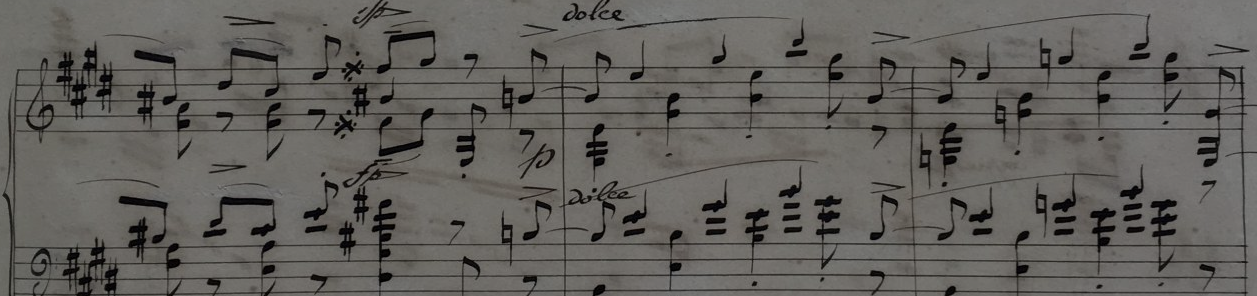 fp dolce
p
fp dolce